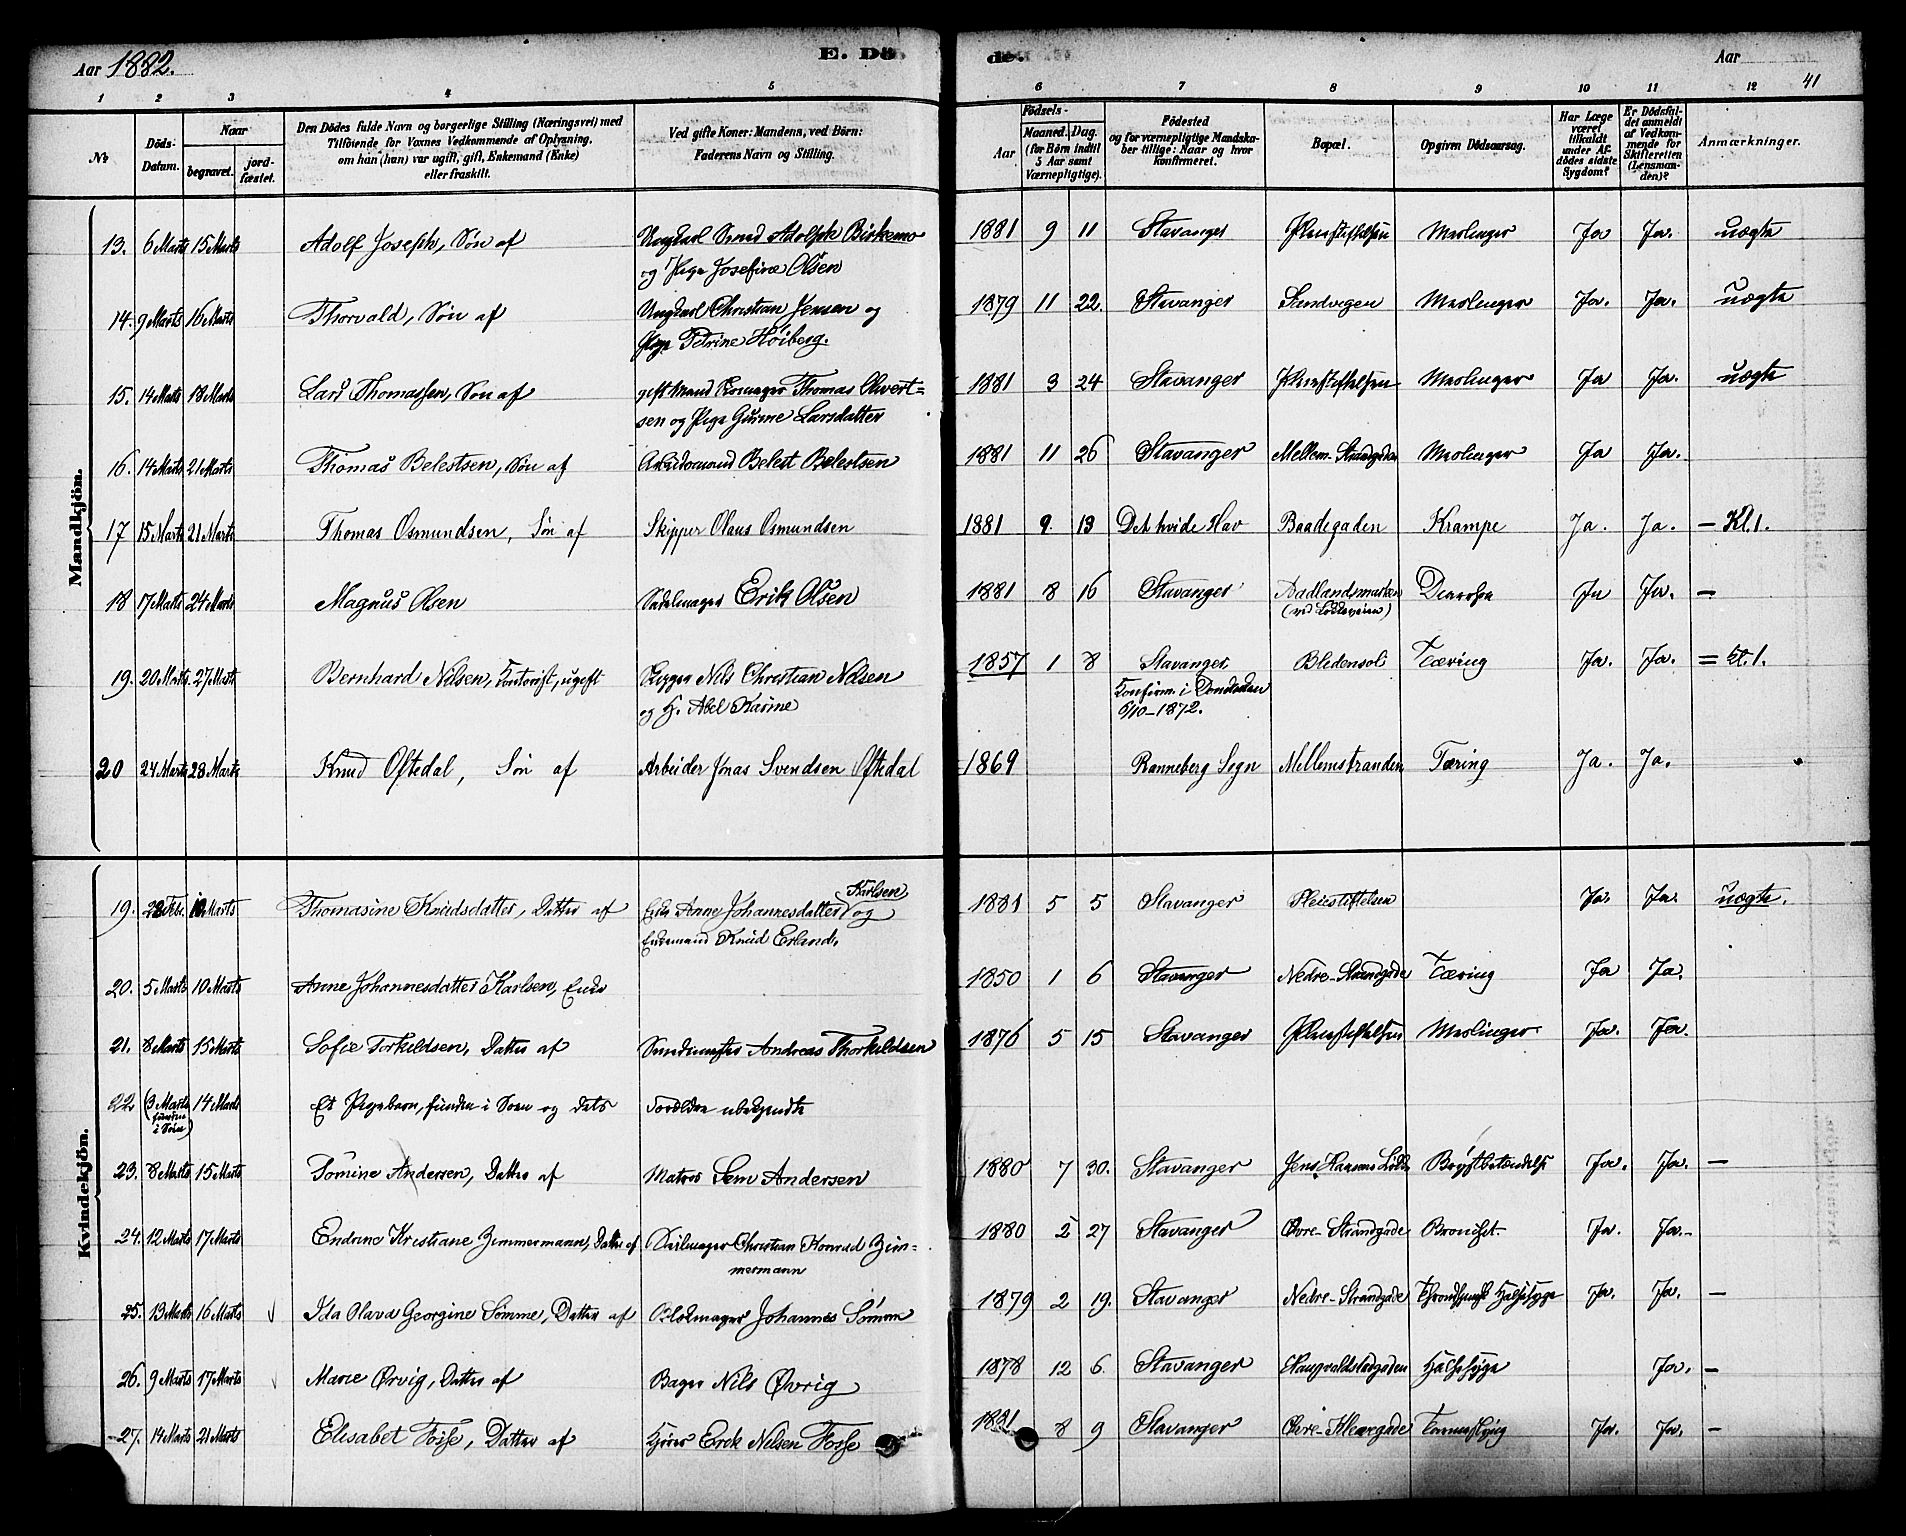 Aar 1882.
E. Dö
de.
Aar
41
1 2 3 4 5 6 7 8 9 10 11 12
No
Döds-Datum.
Naar
begravet.
jordfæstet.
Den Dödes fulde Navn og borgerlige Stilling (Næringsvei) med
Tilföiende for Voxnes Vedkommende af Oplysning,
om han (hun) var ugift, gift, Enkemand (Enke)
eller fraskilt.
Ved gifte Koner: Mandens, ved Börn:
Faderens Navn og Stilling.
Födsels-
Aar
Maaned. Dag.
(for Börn indtil
5 Aar samt
Værnepligtige).
Födested
og for værnepligtige Mandska-
ber tillige: Naar og hvor
konfirmeret.
Bopæl.
Opgiven Dödsaarsag.
Har Læge
været
tilkaldt
under Af-
dödes sidste
Sygdom?
Er Dödsfal-
det anmeldt
af Vedkom-
mende for
Skifteretten
(Lensman-
den)?
Anmærkninger.
Mandkjön.
13. 6 Marts 15 Marts Adolf Joseph, Søn af Ungkarl Smed Adolph Birkemo 1881 9 11 Stavanger Meslinger Ja Ja. uægte
og Pige Josefine Olsen
14. 9 Marts 16 Marts Thorvald, Søn af Ungkarl Christian Jensen og 1879 11 22 Stavanger Sandvigen Meslinger Ja. Ja. uægte
Pige Petrine Høiberg.
15. 14 Marts 18 Marts Lars Thomassen, Søn af gift Mand Thomas 1881 3 24 Stavanger Meslinger Ja Ja. uægte
sen og Pige Gurine Larsdatter
16. 14 Marts 21 Marts Thomas Belestsen, Søn af Arbeidsmand Belest Belestsen 1881 11 26 Stavanger Mellem-Strandgaden Meslinger Ja Ja.
17 15 Marts 21 Marts Thomas Osmundsen, Søn af Skipper Olaus Osmundsen 1881 9. 13 Det hvide Hav Baadegaden Krampe Ja. Ja. – Kl. 1.
18 17 Marts 24 Marts Magnus Olsen Sadelmager Erik Olsen 1881 8 16 Stavanger Aadlandsmarken Diarrhea Ja Ja. –
19. 20 Marts 27 Marts Bernhard Nilsen, Kontorist, ugift Skipper Nils Christian Nilsen 1857 1 8 Stavanger Bledensol Tæring Ja. Ja. = kl. 1.
og H. Abel Karine Konfirm. i Domkirken
6/10–1872.
20 24 Marts 28 Marts Knud Oftedal, Søn af Arbeider Jonas Svendsen Oftedal 1869 Ranneberg Sogn Mellemstranden Tæring Ja. Ja.
Kvindekjön.
Karlsen
19. 28 Febr. Marts Thomasine Knudsdatter, Datter af Enke Anne Johannesdatter og 1881 5 5 Stavanger Pleiestiftelsen Ja. Ja. uægte.
Enkemand Knud Erland.
20. 5 Marts 10 Marts Anne Johannesdatter Karlsen, Enke 1850 1 6 Stavanger Nedre-Strandgade Tæring Ja Ja.
21. 8 Marts 15 Marts Sofie Torkildsen, Datter af Andreas Thorkildsen 1876 5 15 Stavanger Meslinger Ja. Ja.
22 (3 Marts 14 Marts Et Pigebarn, funden i Søen og dets Forældre ubekjendte
funden
i Søen)
23. 8 Marts 15 Marts Tomine Andersen, Datter af Matros Sem Andersen 1880 7 30. Stavanger Brystbetændelse Ja. Ja. –
24. 12 Marts 17 Marts Endrine Kristiane Zimmermann, Datter af Seilmager Christian Konrad Zim- 1880 2 27 Stavanger Øvre-Strandgade Bronchit. Ja. Ja. –
mermann
25. 13 Marts 16 Marts Ida Olava Georgine Sømme, Datter af Blokmager Johannes Sømme 1879 2 19. Stavanger Nedre-Strandgade Halssyge Ja. Ja. –
26. 9 Marts 17 Marts Marie Ørvig, Datter af Bager Nils Øvrig 1878 12 6. Stavanger Haugvaldstadgaden Halssyge Ja. –
27. 14 Marts 21 Marts Elisabet Fosse, Datter af Kjører Erik Nilsen Fosse 1881 8 9 Stavanger Øvre-Kleivegade Ja. Ja. –